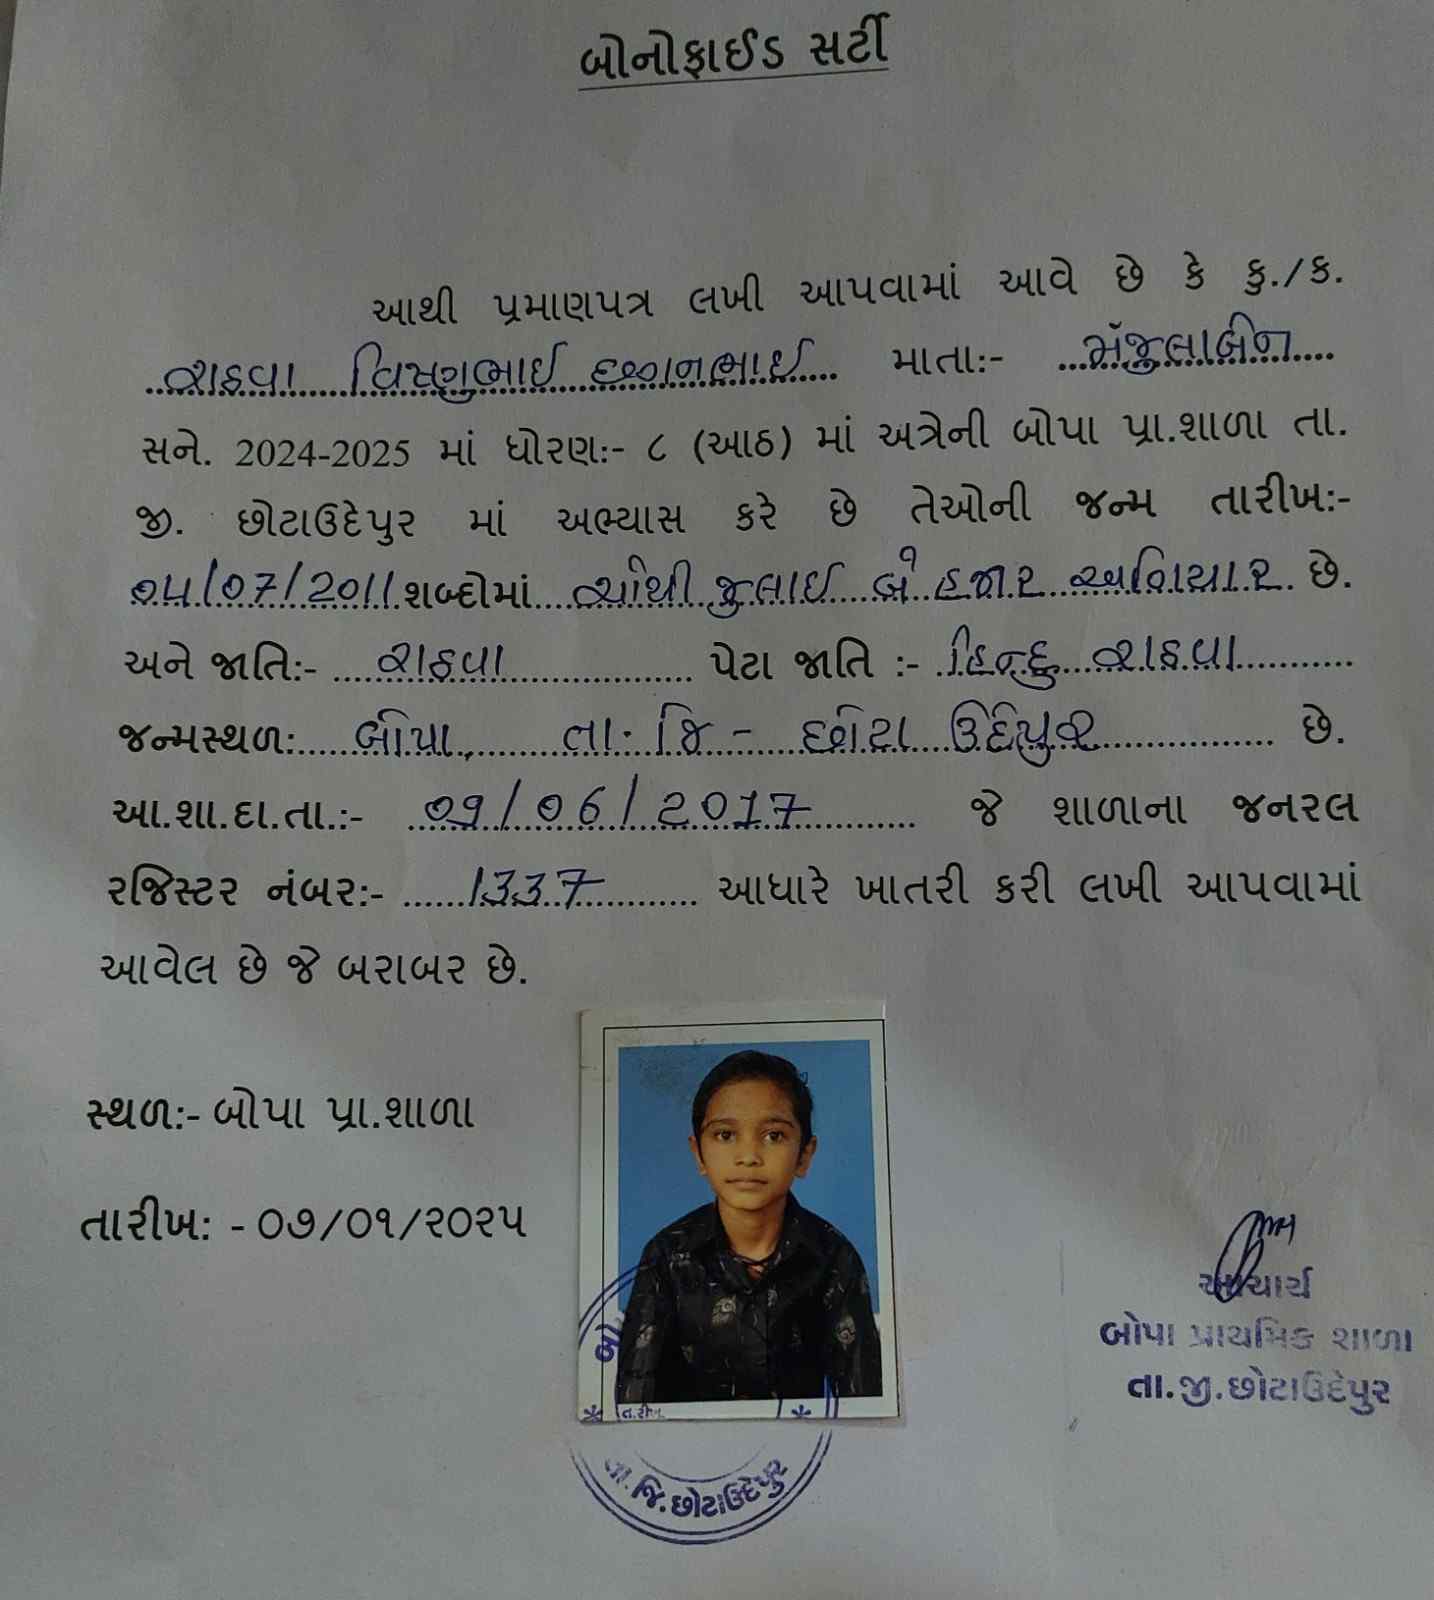 બોનોફાઈડ સર્ટી
આથી પ્રમાણપત્ર લખી આપવામાં આવે છે કે કુ./ક.
રાઠવા વિષ્ણુભાઈ છગનભાઈ માતા:- મંજુલાબેન
સને. 2024-2025 માં ધોરણ:- ૮ (આઠ) માં અત્રેની બોપા પ્રા.શાળા તા.
જી. છોટાઉદેપુર માં અભ્યાસ કરે છે તેઓની જન્મ તારીખ:-
04/07/2011 શબ્દોમાં ચોથી જુલાઈ બે હજાર અગિયાર છે.
અને જાતિ:- રાઠવા પેટા જાતિ :- હિન્દુ રાઠવા
જન્મસ્થળ: બોપા, તા. જિ - છોટા ઉદેપુર છે.
આ.શા.દા.તા.:- 09/06/2017 જે શાળાના જનરલ
રજિસ્ટર નંબર:- 1337 આધારે ખાતરી કરી લખી આપવામાં
આવેલ છે જે બરાબર છે.
સ્થળ:- બોપા પ્રા.શાળા
તારીખ: - ૦૭/૦૧/૨૦૨૫
આચાર્ય
બોપા પ્રાથમિક શાળા
તા.જી.છોટાઉદેપુર
તા. જિ. છોટાઉદેપુર